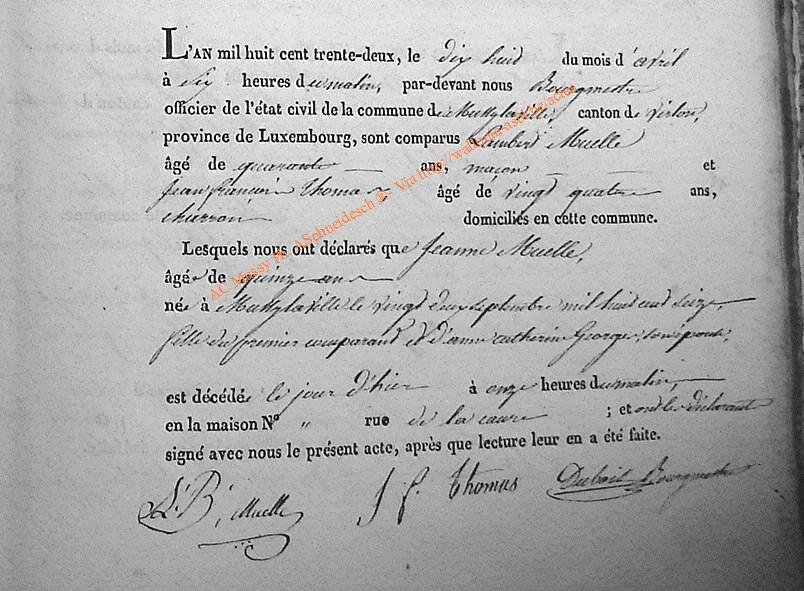 L'AN mil huit cent trente-deux, le dix huit du mois d'avril
à six heures du matin, par-devant nous Bourgmestre
officier de l'état civil de la commune de canton de virton,
province de Luxembourg, sont comparus Lambert Muelle
âgé de quarante ans, maçon et
Jean françois Thomas, âgé de vingt quatre ans,
charron domiciliés en cette commune.
Lesquels nous ont déclarés que Jeanne Muelle,
âgée de quinze ans
née à le vingt deux septembre mil huit cent seize,
fille du premier comparant et d'anne catherine George, son épouse,
est décédée le jour d'hier à onze heures du matin,
en la maison N° " rue de la cave ; et ont les déclarants
signé avec nous le présent acte, après que lecture leur en a été faite.
L. B. Muelle J f. Thomas Bourgmestre
AC Mussy ASchneidesch Via http://